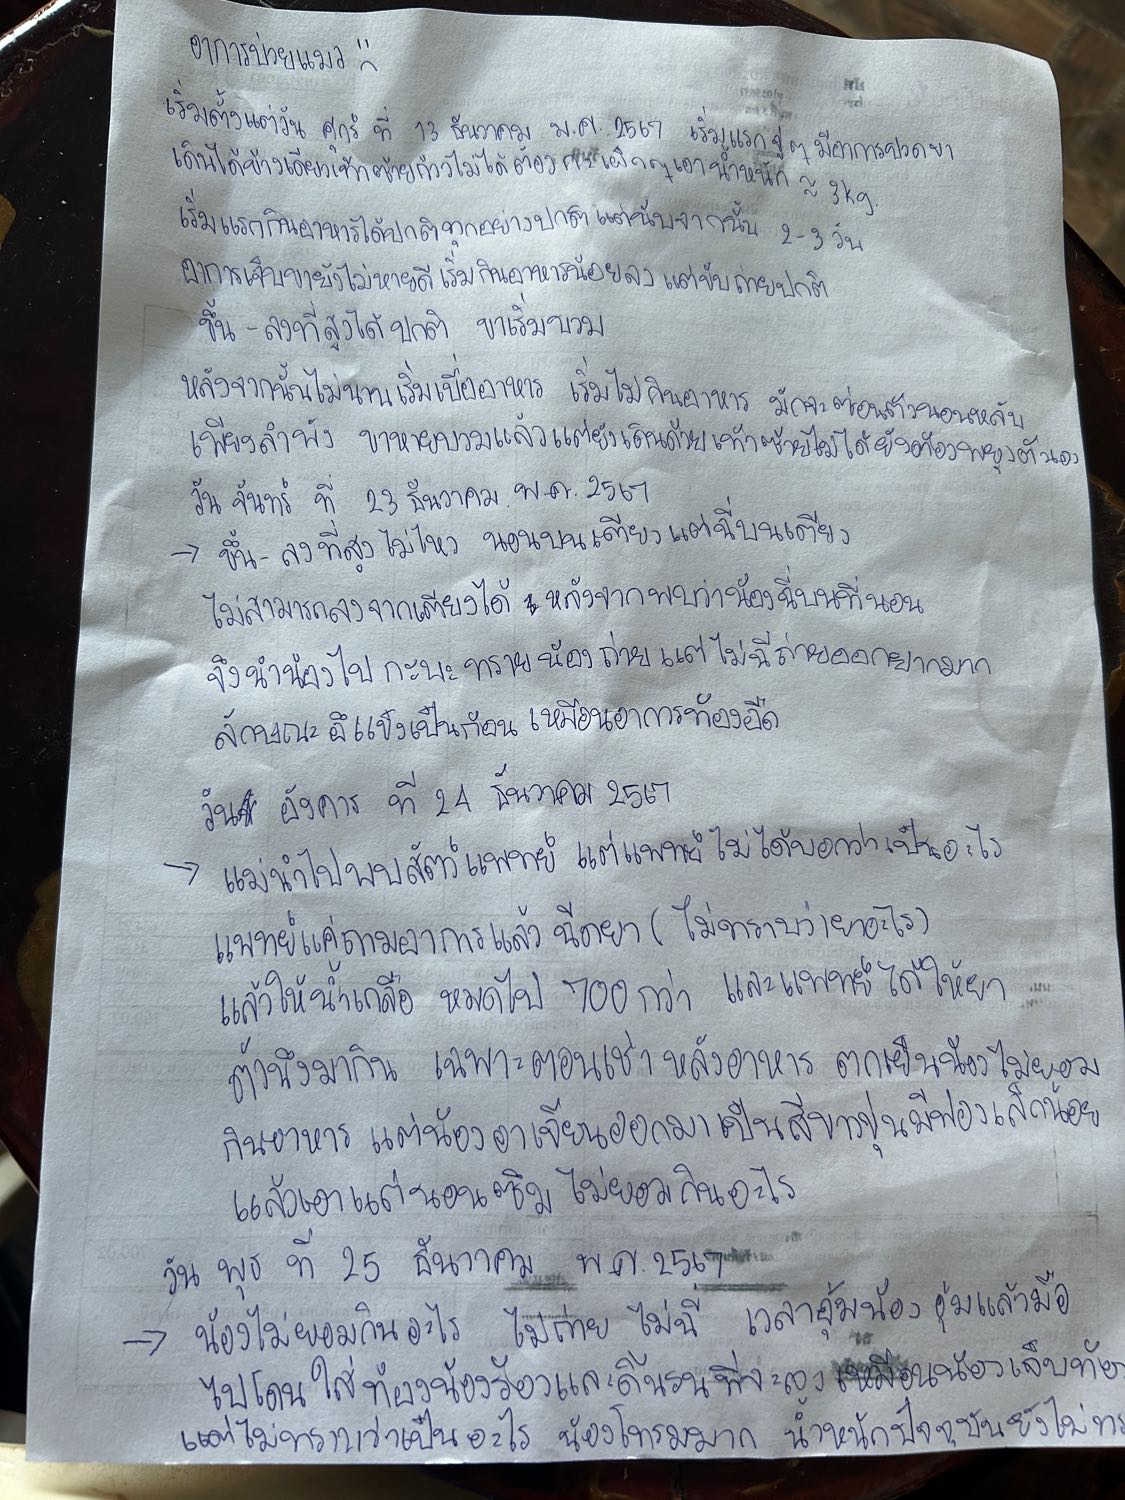 อาการป่วยแมว
เริ่มตั้งแต่วัน ศุกร์ ที่ 13 ธันวาคม พ.ศ. 2567 เริ่มแรกอยู่ๆ มีอาการปวดขา
เดินได้ข้างเดียวเท้าซ้ายก้าวไม่ได้ต้อง เอาน้ำหนัก ~ 3kg.
เริ่มแรกกินอาหารได้ปกติทุกอย่างปกติ แต่นับจากนั้น 2-3 วัน
อาการเจ็บขายังไม่หายดี เริ่มกินอาหารน้อยลง แต่ขับถ่ายปกติ
ขึ้น - ลงที่สูงได้ปกติ ขาเริ่มบวม
หลังจากนั้นไม่นานเริ่มเบื่ออาหาร เริ่มไม่กินอาหาร มักจะซ่อนตัวนอนหลับ
เพียงลำพัง ขาหายบวมแล้วแต่ยังเดินด้วยเท้าซ้ายไม่ได้ยังต้องพยุงตัวเอง
วัน จันทร์ ที่ 23 ธันวาคม พ.ศ. 2567
→ ขึ้น - ลงที่สูงไม่ไหว นอนบนเตียงแต่ฉี่บนเตียง
ไม่สามารถลงจากเตียงได้ หลังจากพบว่าน้องฉี่บนที่นอน
จึงนำน้องไป กะบะ ทราย น้องถ่าย แต่ไม่ฉี่ ถ่ายออกยากมาก
ลักษณะ อึแข็งเป็นก้อน เหมือนอาการท้องอืด
วัน อังคาร ที่ 24 ธันวาคม 2567
→ แม่นำไปพบสัตว์แพทย์ แต่แพทย์ไม่ได้บอกว่าเป็นอะไร
แพทย์แค่ถามอาการแล้ว ฉีดยา (ไม่ทราบว่ายาอะไร)
แล้วให้น้ำเกลือ หมดไป 700 กว่า และแพทย์ได้ให้ยา
ตัวนึงมากิน เฉพาะตอนเช้า หลังอาหาร ตกเย็นน้องไม่ยอม
กินอาหาร แต่น้องอาเจียนออกมาเป็นสีขาวขุ่นมีฟองเล็กน้อย
แล้วเอาแต่นอนซึม ไม่ยอมกินอะไร
วัน พุธ ที่ 25 ธันวาคม พ.ศ. 2567
→ น้องไม่ยอมกินอะไร ไม่ถ่าย ไม่ฉี่ เวลาอุ้มน้อง อุ้มแล้วมือ
ไปโดนใส่ท้องน้องร้องและดิ้นรนที่จะลง เหมือนน้องเจ็บท้อง
แต่ไม่ทราบว่าเป็นอะไร น้องโทรมมาก น้ำหนักปัจจุบันยังไม่